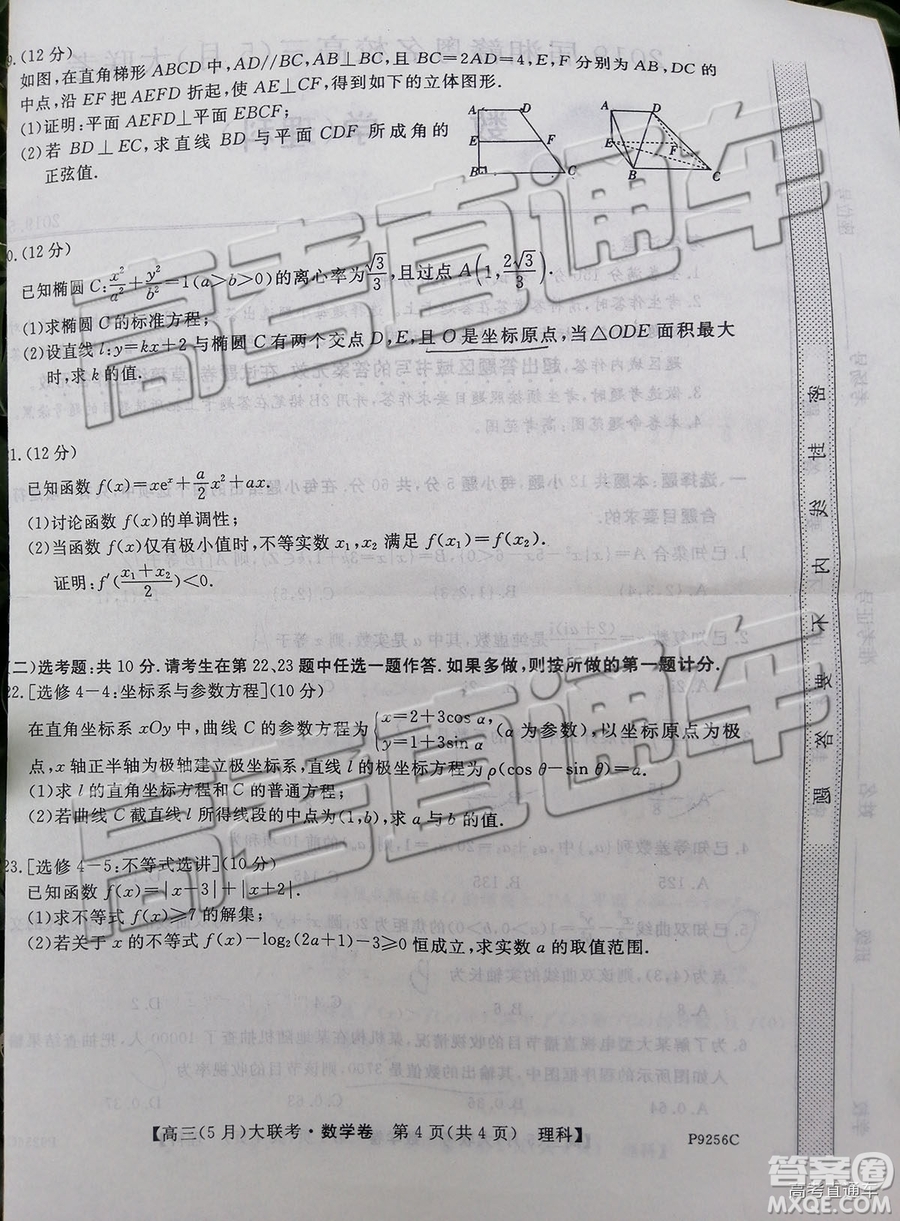 9.(12 分)
如图,在直角梯形 ABCD 中,AD//BC,AB⊥BC,BC=2AD=4,E,F 分别为 AB,DC 的
中点,沿 EF 把 AEFD 折起,使 AE⊥CF,得到如下的立体图形.
(1)证明:平面 AEFD⊥平面 EBCF;
(2)若 BD⊥EC,求直线 BD 与平面 CDF 所成角的
正弦值.
A D E F B C
A D E F B C
0.(12 分)
已知椭圆 C:x²/a²+y²/b²=1(a>b>0)的离心率为√3/3,且过点 A(1,2√3/3).
(1)求椭圆 C 的标准方程;
(2)设直线 l:y=kx+2 与椭圆 C 有两个交点 D,E,且 O 是坐标原点,当△ODE 面积最大
时,求 k 的值.
21.(12 分)
已知函数 f(x)=xeˣ+a/2x²+ax.
(1)讨论函数 f(x)的单调性;
(2)当函数 f(x)仅有极小值时,不等实数 x₁,x₂ 满足 f(x₁)=f(x₂).
证明:f′((x₁+x₂)/2)<0.
(二)选考题:共 10 分.请考生在第 22,23 题中任选一题作答.如果多做,则按所做的第一题计分.
22.[选修 4-4:坐标系与参数方程](10 分)
在直角坐标系 xOy 中,曲线 C 的参数方程为{x=2+3cos α, y=1+3sin α (α 为参数),以坐标原点为极
点,x 轴正半轴为极轴建立极坐标系,直线 l 的极坐标方程为 ρ(cos θ-sin θ)=a.
(1)求 l 的直角坐标方程和 C 的普通方程;
(2)若曲线 C 截直线 l 所得线段的中点为(1,b),求 a 与 b 的值.
23.[选修 4-5:不等式选讲](10 分)
已知函数 f(x)=|x-3|+|x+2|.
(1)求不等式 f(x)≥7 的解集;
(2)若关于 x 的不等式 f(x)-log₂(2a+1)-3≥0 恒成立,求实数 a 的取值范围.
【高三(5 月)大联考·数学卷 第 4 页(共 4 页) 理科】
P9256C
密 封 线 内 不 要 答 题
高考直通车
高考直通车
高考直通车
答案圈
高考直通车
MXQE.COM